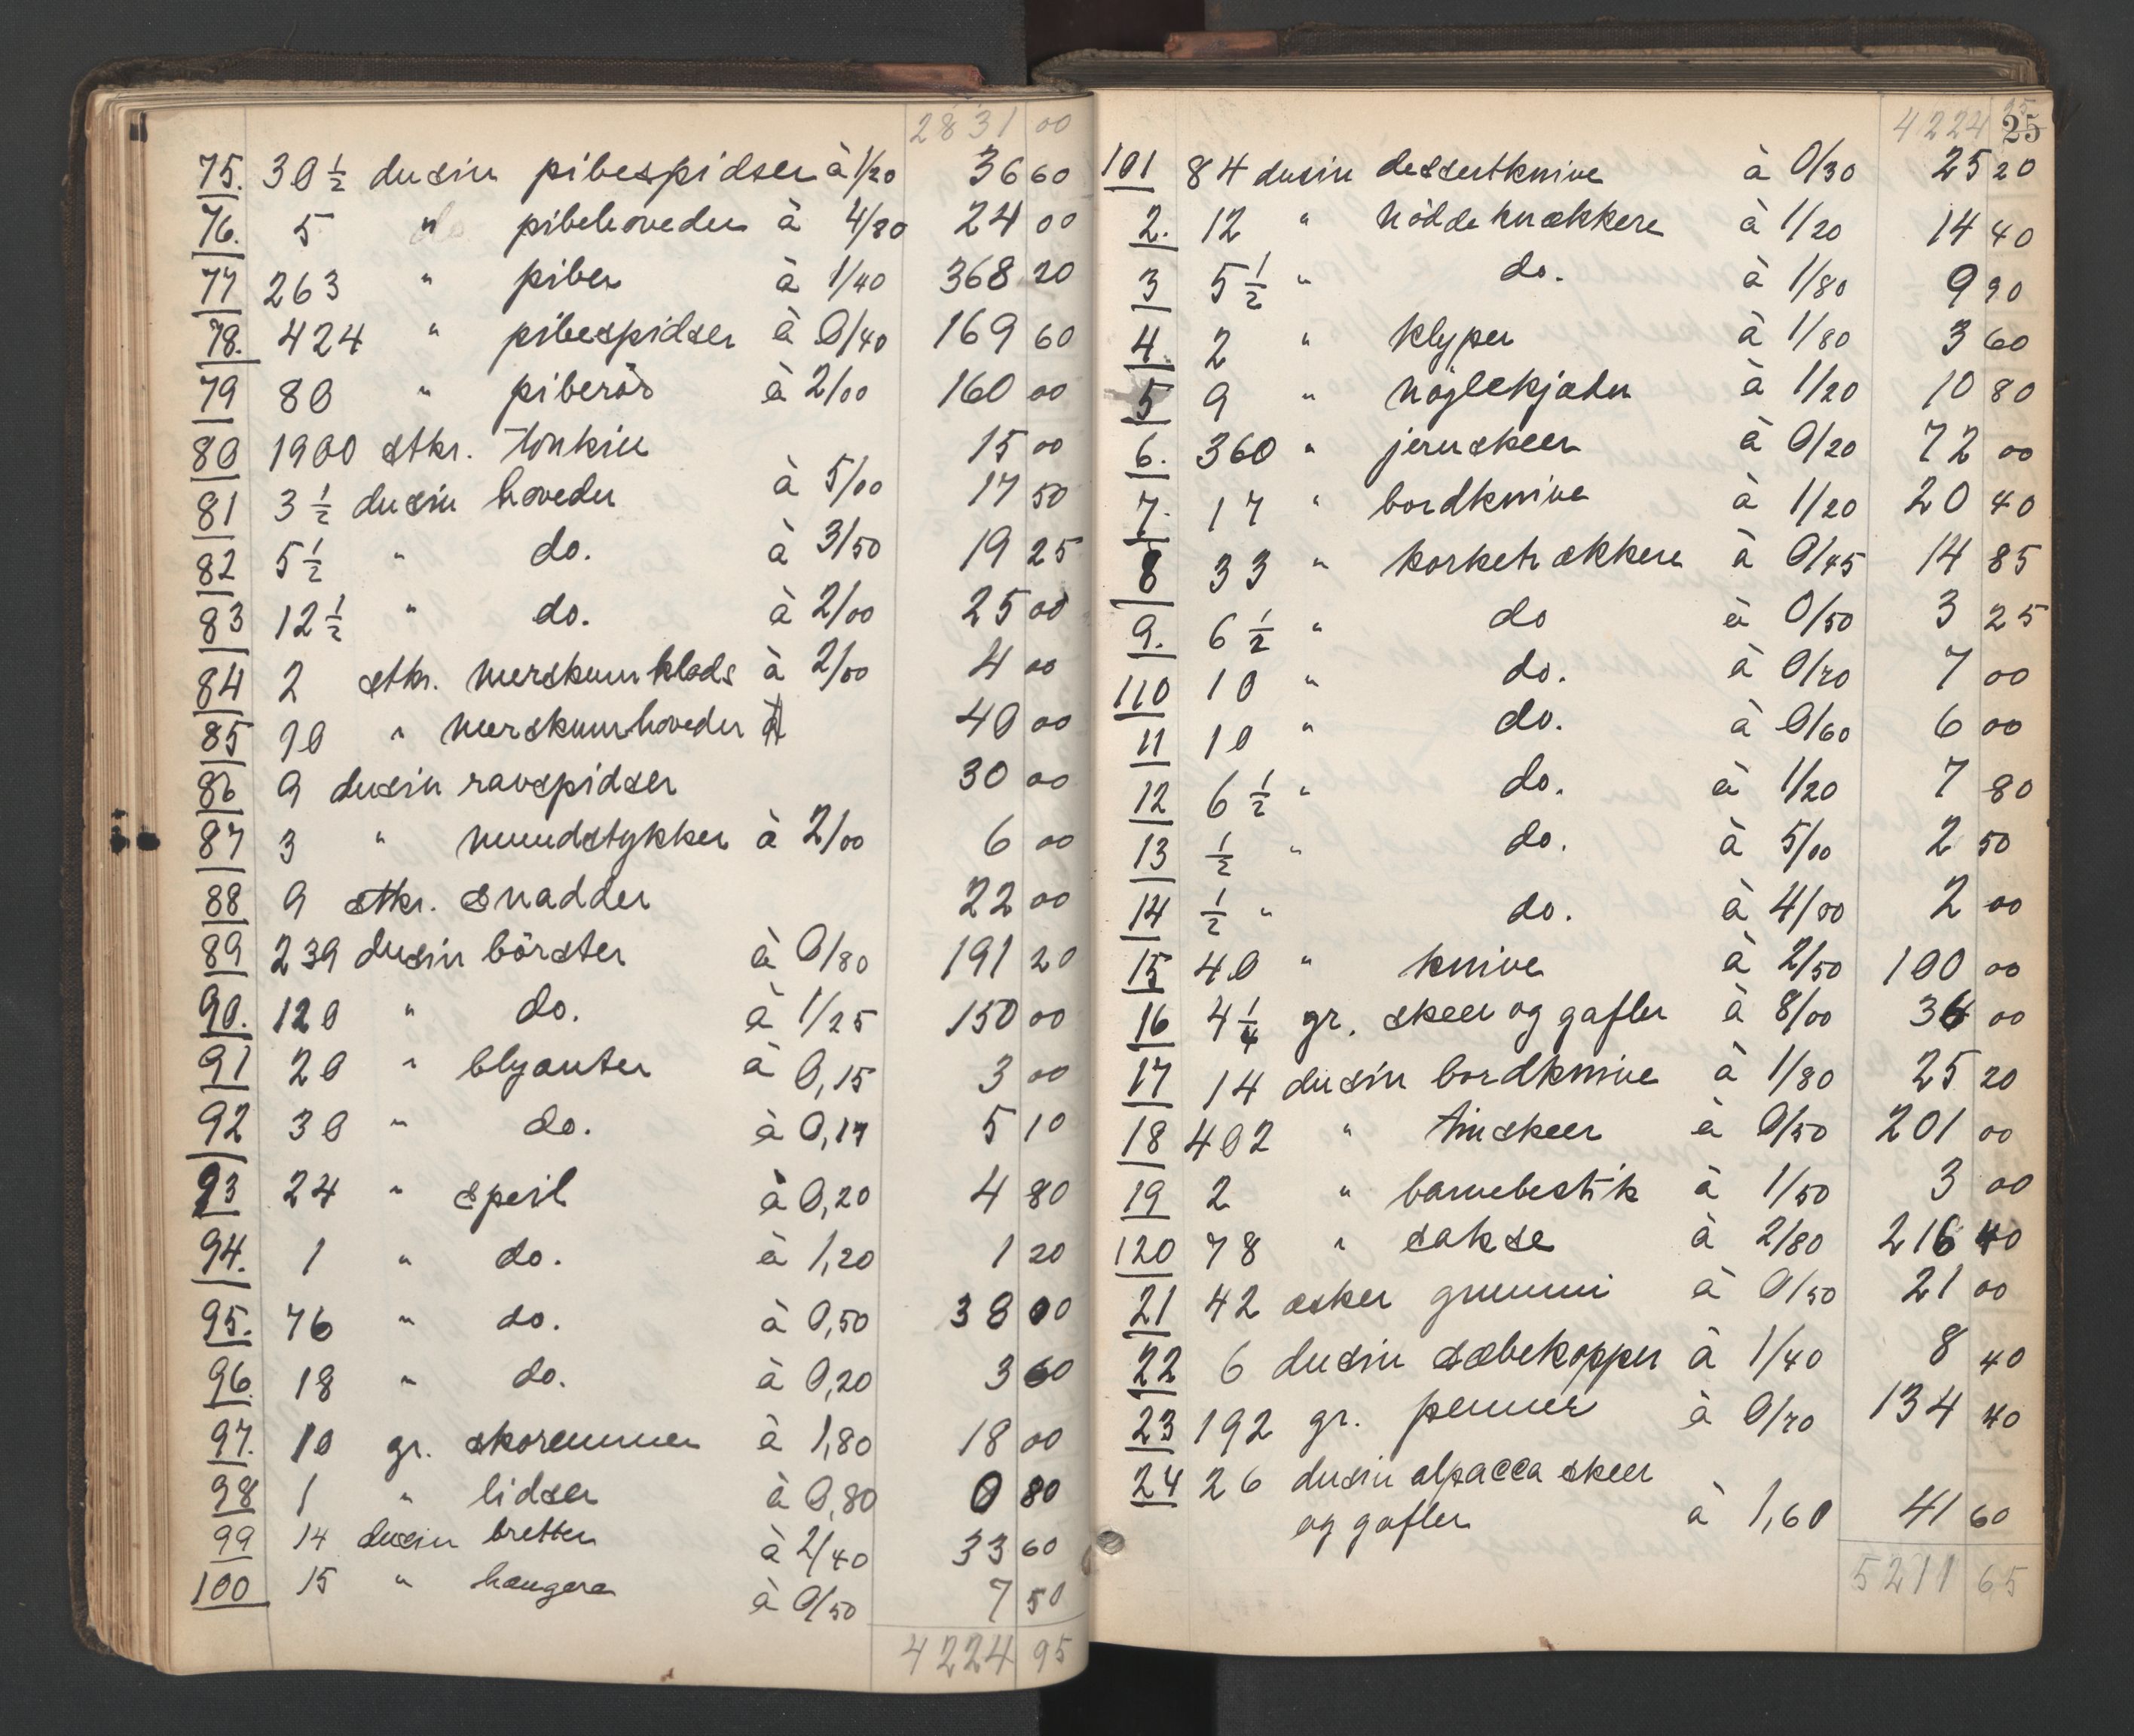 2831 00
75. 30 ½ dusin pibespidser à 1/20 36 60
76. 5 " pibehoveder à 4/80 24 00
77 263 " piber à 1/40 368 20
78. 424 " pibespidser à 0/40 169 60
79 80 " piberör à 2/00 160 00
80 1900 stkr. Tonkin 15 00
81 3 ½ dusin hoveder à 5/00 17 50
82 5 ½ " do. à 3/50 19 25
83 12 ½ " do. à 2/00 25 00
84 2 stkr. merskumklods à 2/00 4 00
85 10 " merskumhoveder 40 00
86 9 dusin ravspidser 30 00
87 3 " mundstykker à 2/00 6 00
88 9 stkr. snadder 22 00
89 239 dusin börster à 0/80 191 20
90. 120 " do. à 1/25 150 00
91 20 " blyanter à 0,15 3 00
92 30 " do. à 0,17 5 10
93 24 " speil à 0,20 4 80
94. 1 " do. à 1,20 1 20
95. 76 " do. à 0,50 38 00
96. 18 " do. à 0,20 3 60
97. 10 gr. skoremmer à 1,80 18 00
98 1 " lidser à 0,80 0 80
99 14 dusin bretter à 2/40 33 60
100 15 " hængere à 0/50 7 50
4224 95
4224 95
25
101 84 dusin dessertknive à 0/30 25 20
2. 12 " nöddeknækkere à 1/20 14 40
3 5 ½ " do. à 1/80 9 90
4. 2 " klyper à 1/80 3 60
5 9 " nöglekjæder à 1/20 10 80
6. 360 " jernskeer à 0/20 72 00
7. 17 " bordknive à 1/20 20 40
8 33 " korketrækkere à 0/45 14 85
9. 6 ½ " do à 0/50 3 25
110 10 " do. à 0/70 7 00
11 10 " do. à 0/60 6 00
12 6 ½ " do. à 1/20 7 80
13 ½ " do. à 5/00 2 50
14 ½ " do. à 4/00 2 00
15 40 " knive à 2/50 100 00
16 4 ¼ gr. skeer og gafler à 8/00 36 00
17 14 dusin bordknive à 1/80 25 20
18 402 " tinskeer à 0/50 201 00
19 2 " barnebestik à 1/50 3 00
120 78 " sakse à 2/80 216 40
21 42 æsker gummi à 0/50 21 00
22 6 dusin sæbekopper à 1/40 8 40
23 192 gr. penner à 0/70 134 40
24 26 dusin alpacca skeer
og gafler à 1,60 41 60
5211 65